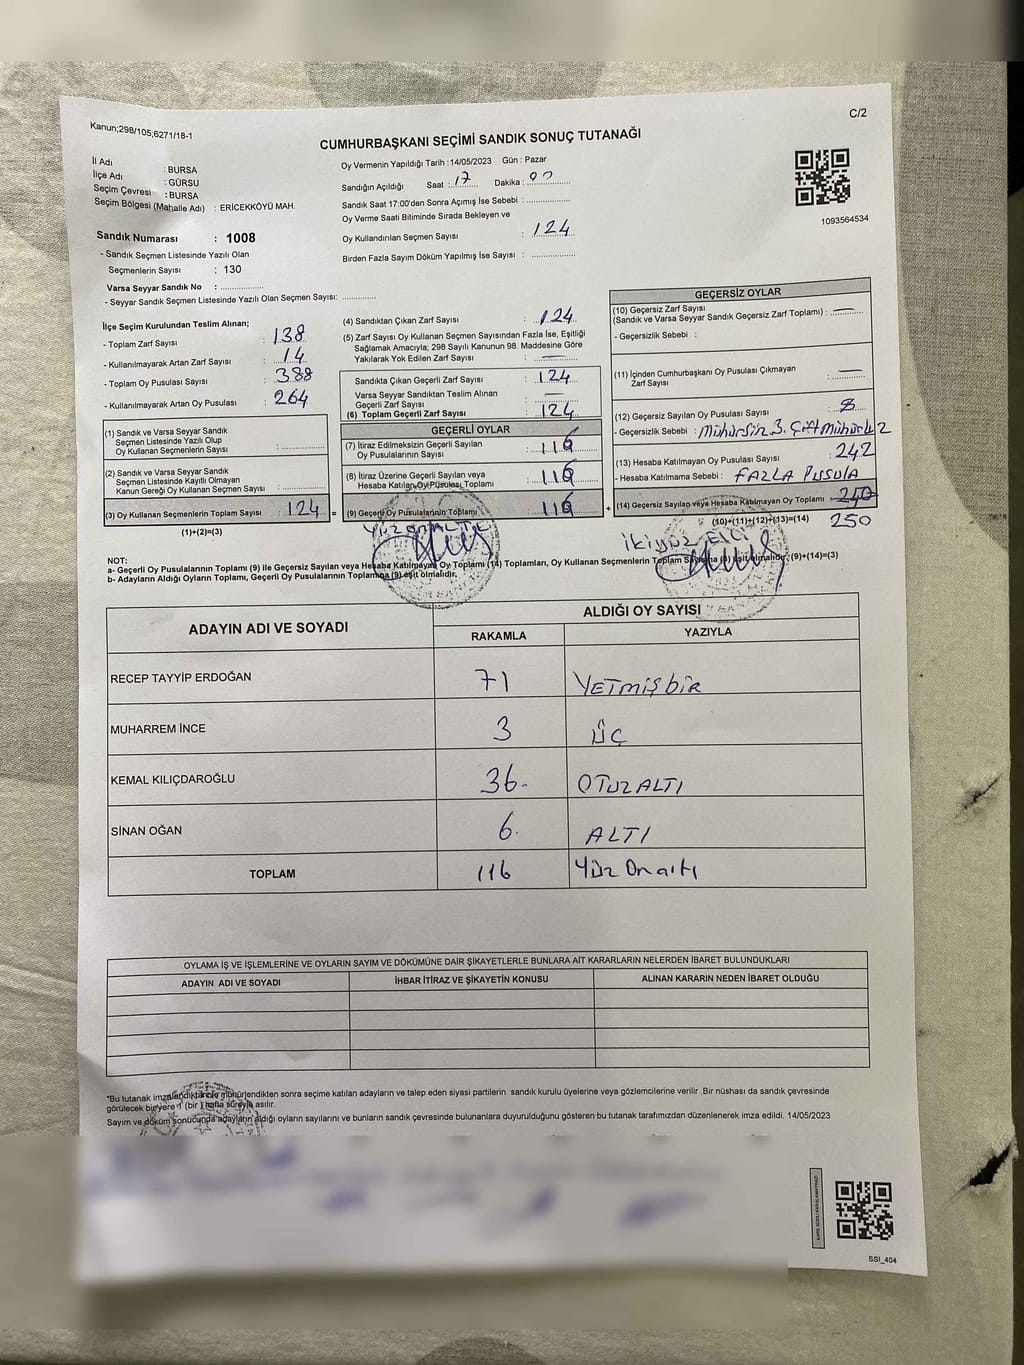 Kanun;298/105;6271/18-1
C/2
CUMHURBAŞKANI SEÇİMİ SANDIK SONUÇ TUTANAĞI
İl Adı : BURSA
İlçe Adı : GÜRSU
Seçim Çevresi : BURSA
Seçim Bölgesi (Mahalle Adı) : ERİCEKKÖYÜ MAH.
Oy Vermenin Yapıldığı Tarih :14/05/2023 Gün : Pazar
Sandığın Açıldığı Saat : 17 Dakika : 00
Sandık Saat 17:00'den Sonra Açımış İse Sebebi :
Oy Verme Saati Bitiminde Sırada Bekleyen ve
Oy Kullandırılan Seçmen Sayısı : 124
Birden Fazla Sayım Döküm Yapılmış İse Sayısı :
1093564534
Sandık Numarası : 1008
- Sandık Seçmen Listesinde Yazılı Olan
Seçmenlerin Sayısı : 130
Varsa Seyyar Sandık No :
- Seyyar Sandık Seçmen Listesinde Yazılı Olan Seçmen Sayısı:
İlçe Seçim Kurulundan Teslim Alınan;
- Toplam Zarf Sayısı : 138
- Kullanılmayarak Artan Zarf Sayısı : 14
- Toplam Oy Pusulası Sayısı : 388
- Kullanılmayarak Artan Oy Pusulası : 264
(1) Sandık ve Varsa Seyyar Sandık
Seçmen Listesinde Yazılı Olup
Oy Kullanan Seçmenlerin Sayısı :
(2) Sandık ve Varsa Seyyar Sandık
Seçmen Listesinde Kayıtlı Olmayan
Kanun Gereği Oy Kullanan Seçmen Sayısı :
(3) Oy Kullanan Seçmenlerin Toplam Sayısı : 124 =
(1)+(2)=(3)
(4) Sandıktan Çıkan Zarf Sayısı : 124
(5) Zarf Sayısı Oy Kullanan Seçmen Sayısından Fazla İse, Eşitliği
Sağlamak Amacıyla; 298 Sayılı Kanunun 98. Maddesine Göre
Yakılarak Yok Edilen Zarf Sayısı : —
Sandıkta Çıkan Geçerli Zarf Sayısı : 124
Varsa Seyyar Sandıktan Teslim Alınan
Geçerli Zarf Sayısı : —
(6) Toplam Geçerli Zarf Sayısı : 124
GEÇERLİ OYLAR
(7) İtiraz Edilmeksizin Geçerli Sayılan
Oy Pusulalarının Sayısı : 116
(8) İtiraz Üzerine Geçerli Sayılan veya
Hesaba Katılan Oy Pusulası Toplamı : 116
(9) Geçerli Oy Pusulalarının Toplamı : 116 +
YÜZONALTI
GEÇERSİZ OYLAR
(10) Geçersiz Zarf Sayısı
(Sandık ve Varsa Seyyar Sandık Geçersiz Zarf Toplamı) : —
- Geçersizlik Sebebi :
(11) İçinden Cumhurbaşkanı Oy Pusulası Çıkmayan
Zarf Sayısı : —
(12) Geçersiz Sayılan Oy Pusulası Sayısı : 8
- Geçersizlik Sebebi : Mühürsüz 3. Çift Mühürlü 2
(13) Hesaba Katılmayan Oy Pusulası Sayısı : 242
- Hesaba Katılmama Sebebi : FAZLA PUSULA
(14) Geçersiz Sayılan veya Hesaba Katılmayan Oy Toplamı : 240
(10)+(11)+(12)+(13)=(14) 250
ikiyüz ELLİ
NOT:
a- Geçerli Oy Pusulalarının Toplamı (9) ile Geçersiz Sayılan veya Hesaba Katılmayan Oy Toplamı (14) Toplamları, Oy Kullanan Seçmenlerin Toplam Sayısına (3) eşit olmalıdır. (9)+(14)=(3)
b- Adayların Aldığı Oyların Toplamı, Geçerli Oy Pusulalarının Toplamına (9) eşit olmalıdır.
ADAYIN ADI VE SOYADI
ALDIĞI OY SAYISI
RAKAMLA
YAZIYLA
RECEP TAYYİP ERDOĞAN 71 YETMİŞBİR
MUHARREM İNCE 3 ÜÇ
KEMAL KILIÇDAROĞLU 36. OTUZALTI
SİNAN OĞAN 6. ALTI
TOPLAM 116 Yüz Onaltı
OYLAMA İŞ VE İŞLEMLERİNE VE OYLARIN SAYIM VE DÖKÜMÜNE DAİR ŞİKAYETLERLE BUNLARA AİT KARARLARIN NELERDEN İBARET BULUNDUKLARI
ADAYIN ADI VE SOYADI
İHBAR İTİRAZ VE ŞİKAYETİN KONUSU
ALINAN KARARIN NEDEN İBARET OLDUĞU
*Bu tutanak imzalandıktan ve mühürlendikten sonra seçime katılan adayların ve talep eden siyasi partilerin sandık kurulu üyelerine veya gözlemcilerine verilir .Bir nüshası da sandık çevresinde
görülecek bir yere 1 (bir) hafta süreyle asılır.
Sayım ve döküm sonucunda adayların aldığı oyların sayılarını ve bunların sandık çevresinde bulunanlara duyurulduğunu gösteren bu tutanak tarafımızdan düzenlenerek imza edildi. 14/05/2023
SSI_404